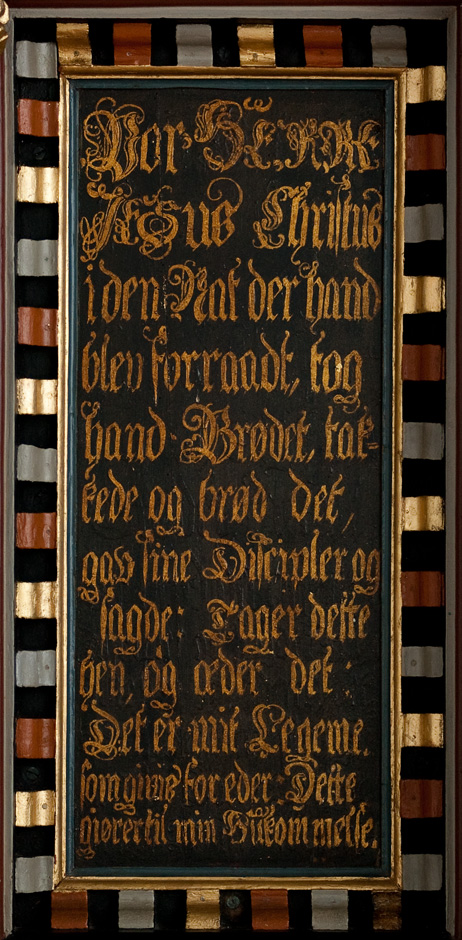 Vor HERRE
JESus Christus
i den Nat der hand
blev forraadt, tog
hand Brødet, tak-
kede og brød det,
gav sine Discipler og
sagde: Tager dette
hen, og æder det:
Det er mit Legeme.
som givis for eder. Dette
giører til min Hükommelse.